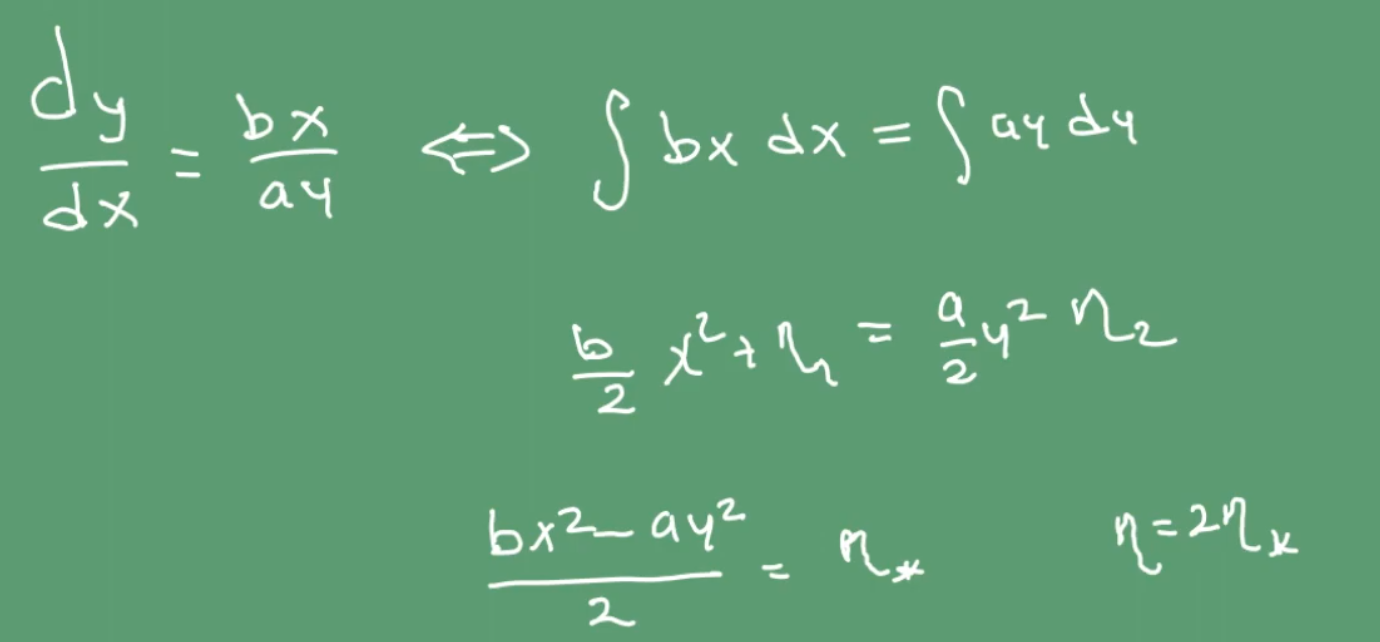 dy/dx = bx/ay ⇔ ∫ bx dx = ∫ ay dy
b/2 x² + η₁ = a/2 y² η₂
(bx² - ay²)/2 = η* η = 2η*